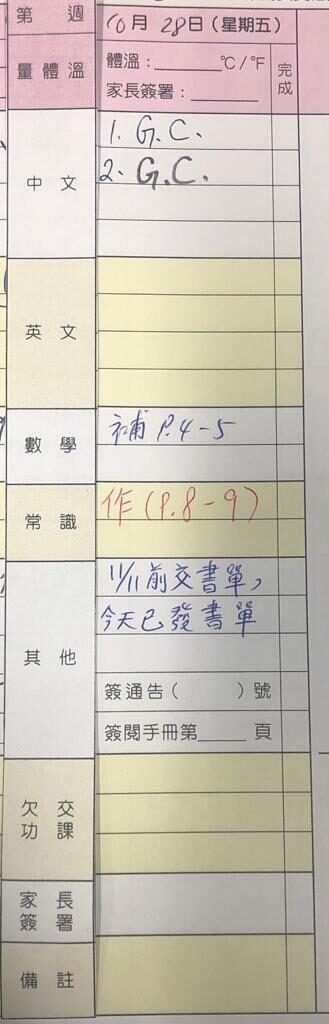 第 週 10月28日(星期五)
量體溫 體溫：______℃/℉
家長簽署：______ 完成
中文 1. G.C.
2. G.C.
英文
數學 補 P.4-5
常識 作(P.8-9)
其他 11/11前交書單,
今天已發書單
簽通告( )號
簽閱手冊第____頁
欠交功課
家長簽署
備註